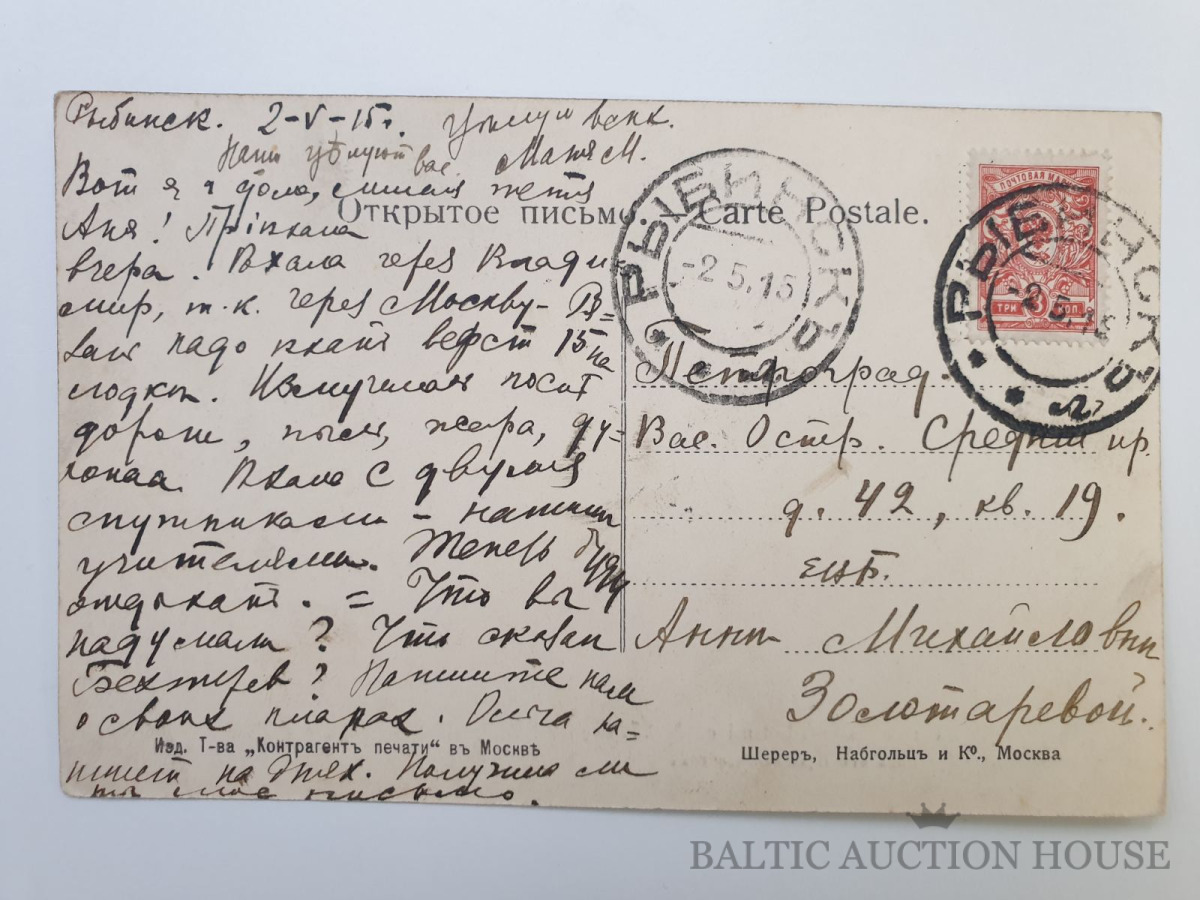 Рыбинск. 2-V-15г. Целую всех.
Наши цѣлуют вас. Маня М.
Вот я и дома, милая тетя
Аня! Пріехала
вчера. Ехала через Влади-
мир, т.к. через Москву-
надо ехать верст 15 на
лодке. Измучилась
дорога, пыль, жара, ду-
Ехала с двумя
спутниками - нашими
учителями. Теперь буду
отдыхать. = Что вы
надумали? Что сказал
Бехтерев? Напишите нам
о своих планах. на-
пишет на днях. Получила ли
ты мое письмо.
Открытое письмо. — Carte Postale.
РЫБИНСКЪ
-2.5.15
ПОЧТОВАЯ МАРКА
ТРИ 3 КОП
РЫБИНСКЪ
-2.5.15
Петроград.
Вас. Остр. Средний пр.
д. 42, кв. 19.
ецб.
Анне Михайловне
Золотаревой.
Изд. Т-ва „Контрагентъ печати“ въ Москвѣ
Шереръ, Набгольцъ и Ко., Москва
BALTIC AUCTION HOUSE